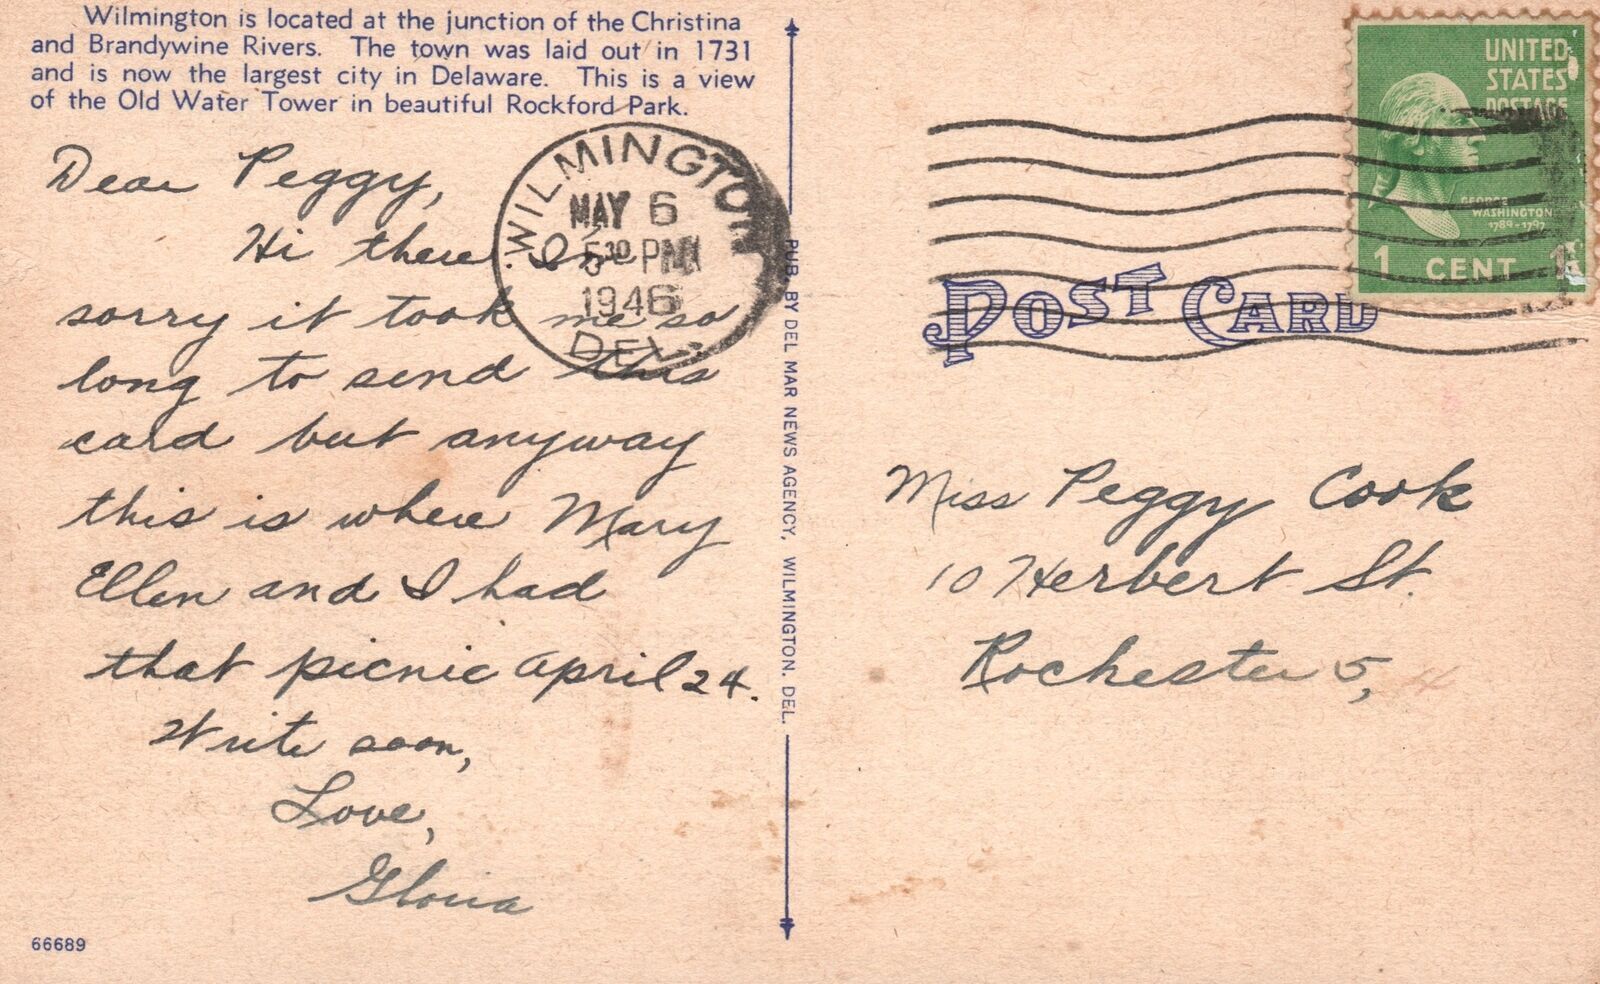 Wilmington is located at the junction of the Christina
and Brandywine Rivers. The town was laid out in 1731
and is now the largest city in Delaware. This is a view
of the Old Water Tower in beautiful Rockford Park.
Dear Peggy,
Hi there. I'm
sorry it took me so
long to send this
card but anyway
this is where Mary
Ellen and I had
that picnic April 24.
Write soon,
Love,
Gloria
66689
WILMINGTON
MAY 6
5 30 PM
1946
DEL.
PUB. BY DEL MAR NEWS AGENCY, WILMINGTON. DEL.
UNITED
STATES
POSTAGE
GEORGE
WASHINGTON
1789-1797
1 CENT 1
POST CARD
Miss Peggy Cook
10 Herbert St.
Rochester 5,